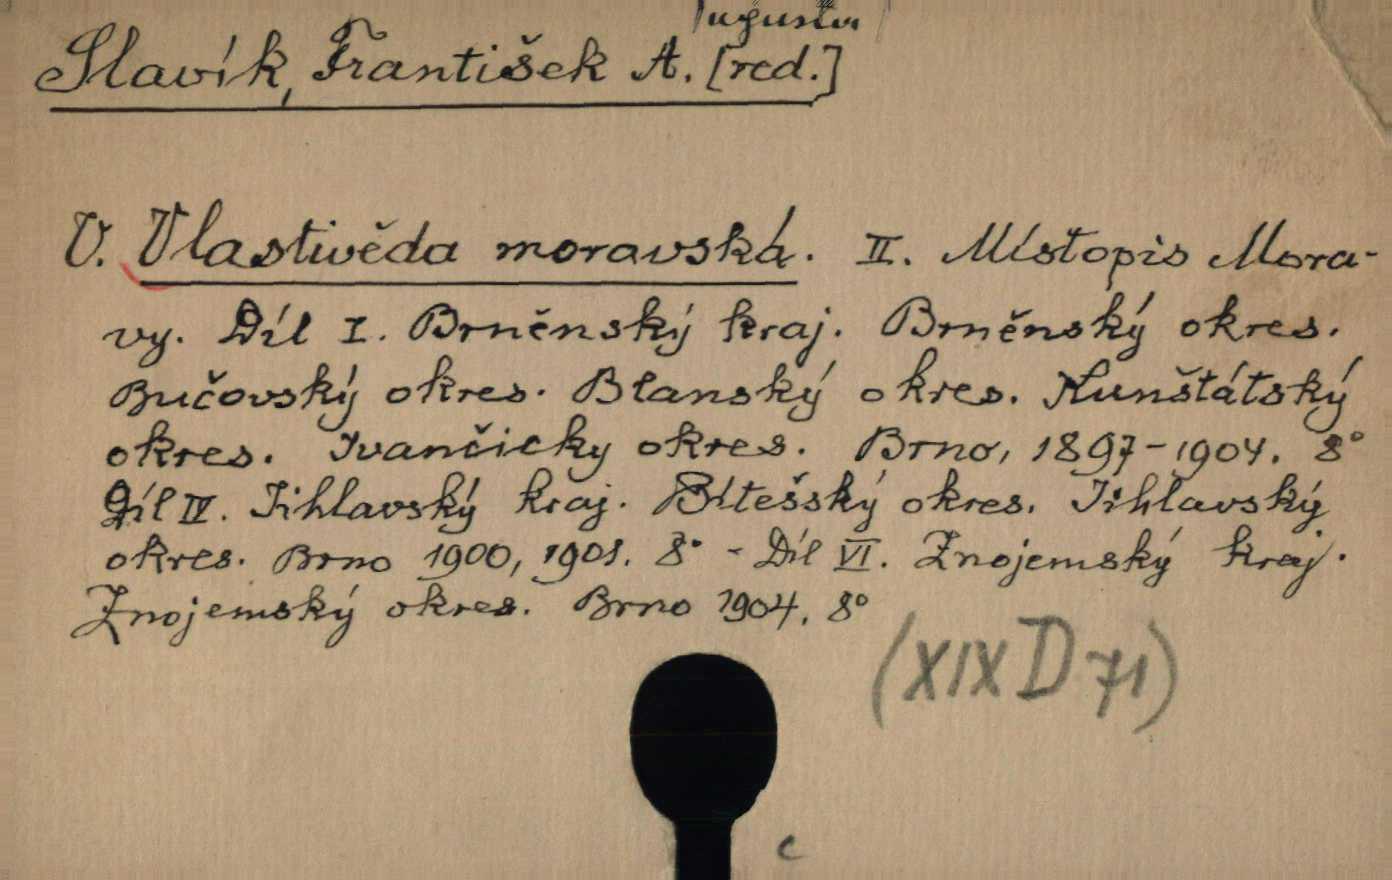 [ugustin]
Slavík, František A. [red.]
V. Vlastivěda moravská. II. Místopis Mora-
vy. Díl I. Brněnský kraj. Brněnský okres.
Bučovský okres. Blanský okres. Kunštátský
okres. Ivančicky okres. Brno, 1897-1904. 8°
Díl IV. Jihlavský kraj. Bítešský okres. Jihlavský
okres. Brno 1900, 1901. 8° - Díl VI. Znojemský kraj.
Znojemský okres. Brno 1904. 8°
(XIX D 71)
c